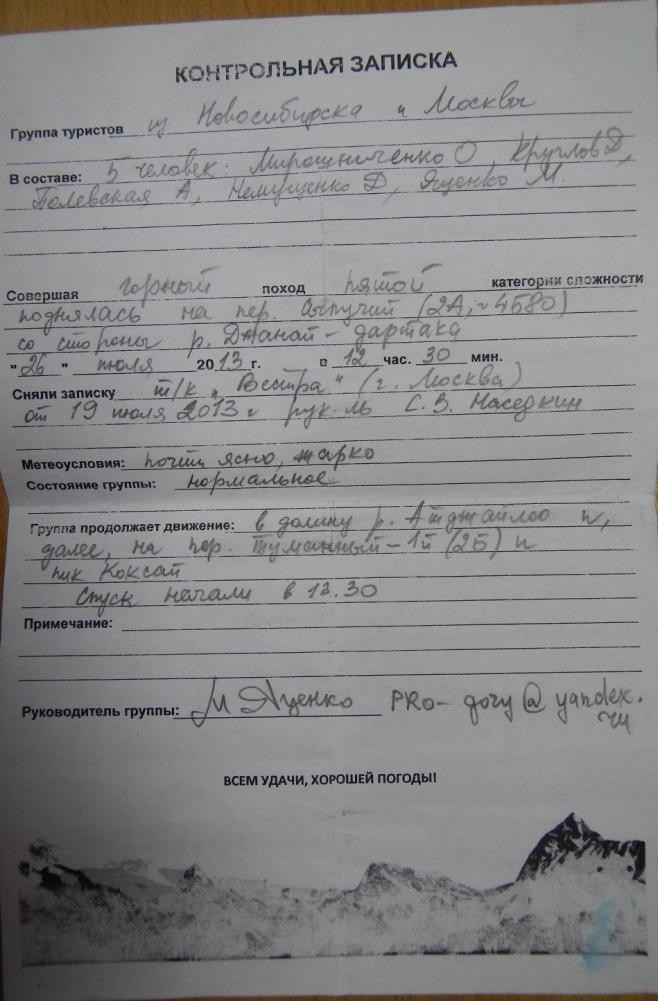 КОНТРОЛЬНАЯ ЗАПИСКА
Группа туристов из Новосибирска и Москвы
В составе: 5 человек: Мирошниченко О, Круглов Д,
Полевская А, Немущенко Д, Яценко М.
Совершая горный поход пятой категории сложности
поднялась на пер. Выпучий (2А, ~ 4580)
со стороны р. Джанай-дартака
"26" июля 2013 г. в 12 час. 30 мин.
Сняли записку т/к "Вестра" (г. Москва)
от 19 июля 2013 г рук-ль С.В. Наседкин
Метеоусловия: почти ясно, жарко
Состояние группы: нормальное
Группа продолжает движение: в долину р. Атджайлоо и,
далее, на пер. Туманный-1й (2Б) и
пик Коксай
Спуск начали в 13.30
Примечание:
Руководитель группы: М Яценко PRO-gory@yandex.
ru
ВСЕМ УДАЧИ, ХОРОШЕЙ ПОГОДЫ!